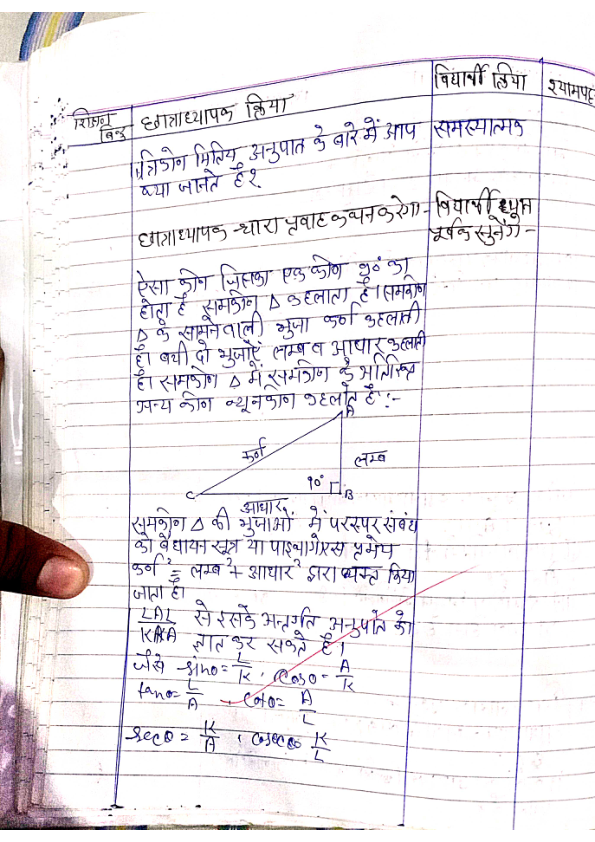 शिक्षण बिन्दु
छात्राध्यापक क्रिया
विद्यार्थी क्रिया
श्यामपट्ट
त्रिकोण मितिय अनुपात के बारे में आप
क्या जानते है?
समस्यात्मक
छात्राध्यापक धारा प्रवाह कथन करेगा-
विद्यार्थी ध्यान
पूर्वक सुनेंगे -
ऐसा कोन जिसका एक कोन 90° का
होता है समकोन Δ कहलाता है। समकोन
Δ के सामने वाली भुजा कर्ण कहलाती
है। बची दो भुजाएँ लम्ब व आधार कहलाती
है। समकोन Δ में समकोन के अतिरिक्त
अन्य कोन न्यूनकोन कहलाते है :-
A
कर्ण
लम्ब
90°
C
B
आधार
समकोन Δ की भुजाओं में परस्पर संबंध
को बौधायन सूत्र या पाइथागोरस प्रमेय
कर्ण² = लम्ब² + आधार² द्वारा व्यक्त किया
जाता है।
LAL/KKA से इसके अन्तर्गत अनुपात को
ज्ञात कर सकते है।
जैसे sinθ = L/K, Cosθ = A/K
tanθ = L/A, Cotθ = A/L
secθ = K/A, cosecθ K/L